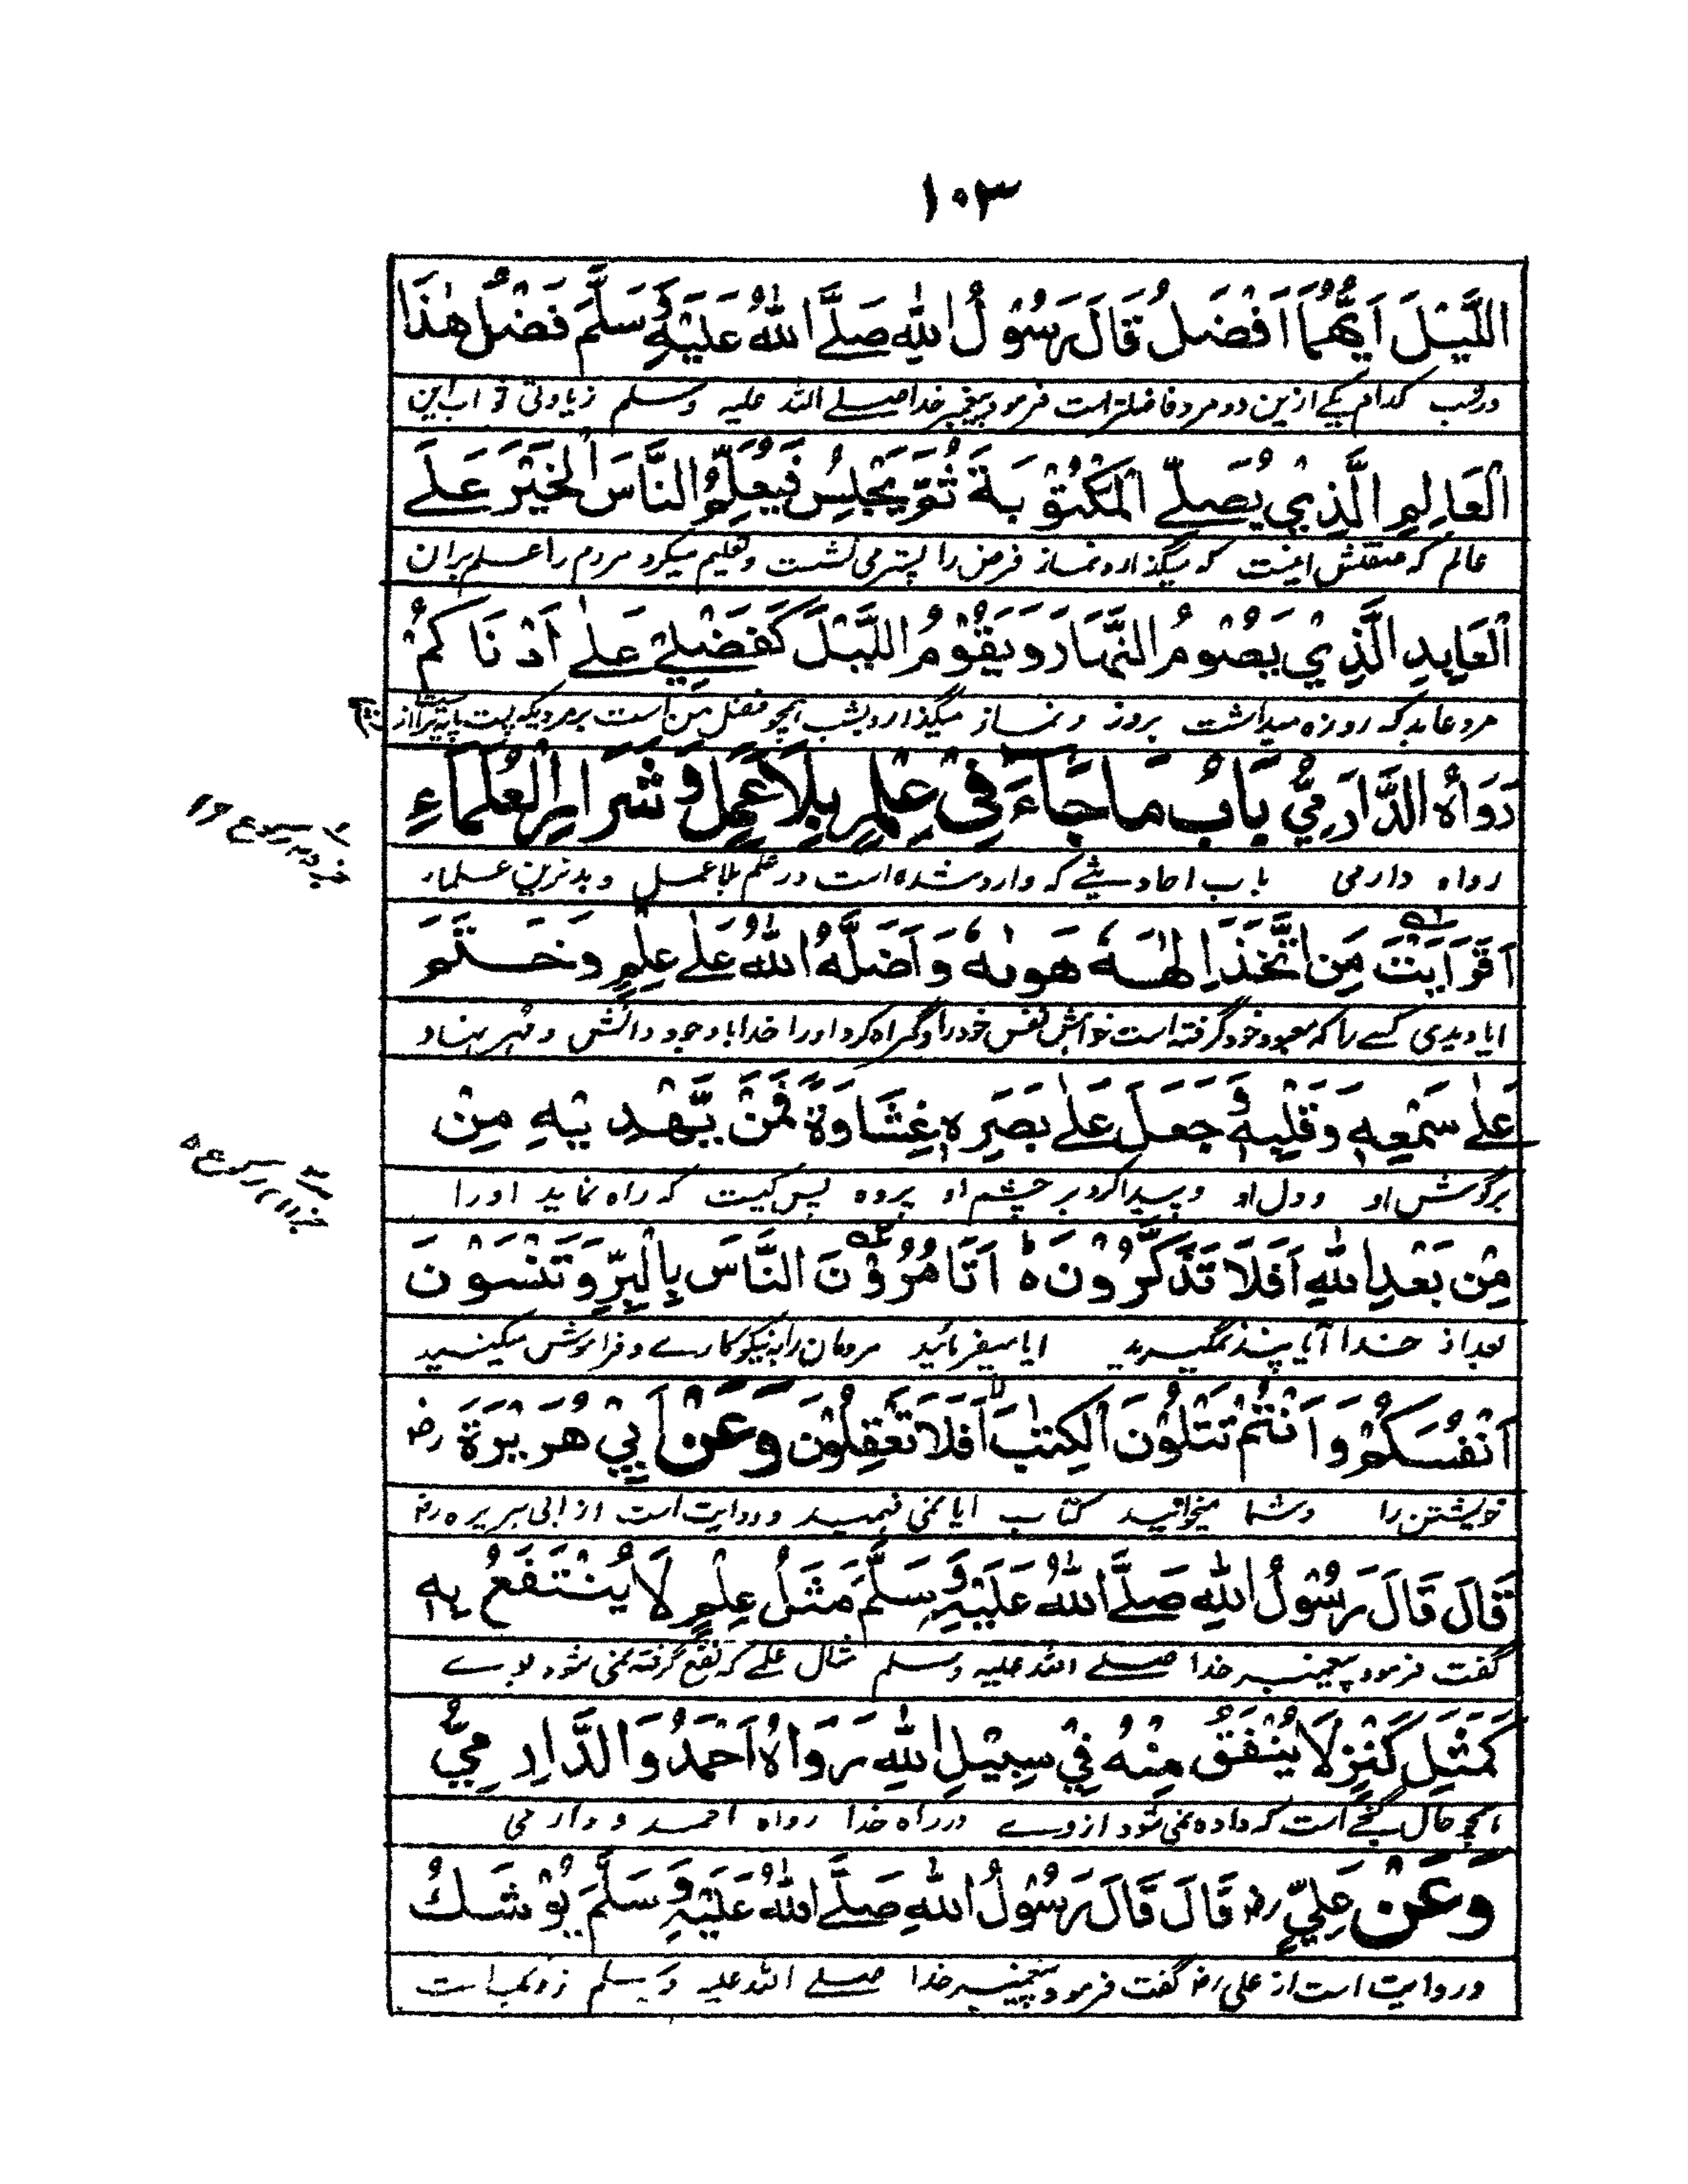 ۱۰۳
اللَّيْلَ اَيُّهُمَا اَفْضَلُ قَالَ رَسُوْلُ اللّٰهِ صَلَّے اللّٰهُ عَلَيْهِ وَسَلَّمَ فَضْلُ هٰذَا
در شب کدام یکے ازین دو مرد فاضلتر است فرمود پیغمبر خدا صلے اللہ علیہ وسلم زیادتی ثواب این
الْعَالِمِ الَّذِي يُصَلِّے الْمَكْتُوْبَةَ ثُمَّ يَجْلِسُ فَيُعَلِّمُ النَّاسَ الْخَيْرَ عَلَے
عالم که صفتش اینست که میگذارد نماز فرض را پستر می نشست و تعلیم میکرد مردم را علم بران
الْعَابِدِ الَّذِيْ يَصُوْمُ النَّهَارَ وَيَقُوْمُ اللَّيْلَ كَفَضْلِيْ عَلٰے اَدْنَاكُمْ
مرد عابد که روزه میداشت بروز و نماز میگذارد بشب همچو فضل من است بر مردیکه پست پایه تر از
رَوَاهُ الدَّارَمِيُّ بَابُ مَا جَاءَ فِيْ عِلْمٍ بِلَا عَمَلٍ وَشَرَارِ الْعُلَمَاءِ
رواه دارمی باب احادیثے که وارد شده است در علم بلا عمل و بدترین علمار
اَفَرَاَيْتَ مَنِ اتَّخَذَ اِلٰهَهٗ هَوٰىهُ وَاَضَلَّهُ اللّٰهُ عَلٰے عِلْمٍ وَخَتَمَ
ایا دیدی کسے را که معبود خود گرفته است خواهش نفس خود را و گمراه کرد او را خدا با وجود دانش و مهر نهاد
عَلٰے سَمْعِهٖ وَقَلْبِهٖ وَجَعَلَ عَلٰے بَصَرِهٖ غِشَاوَةً فَمَنْ يَّهْدِيْهِ مِنْ
بر گوش او و دل او و پیدا کرد بر چشم او پرده پس کیست که راه نماید او را
مِنْ بَعْدِ اللّٰهِ اَفَلَا تَذَكَّرُوْنَ ہ ط اَتَامُرُوْنَ النَّاسَ بِالْبِرِّ وَتَنْسَوْنَ
بعد از خدا آیا پند نمیگیرید ایا میفرمائید مردمان را به نیکو کارے و فراموش میکنید
اَنْفُسَكُمْ وَاَنْتُمْ تَتْلُوْنَ الْكِتٰبَ ط اَفَلَا تَعْقِلُوْنَ وَعَنْ اَبِيْ هُرَيْرَةَ رض
خویشتن را و شما میخوانید کتاب ایا نمی فهمید و روایت است از ابی هریره رض
قَالَ قَالَ رَسُوْلُ اللّٰهِ صَلَّے اللّٰهُ عَلَيْهِ وَسَلَّمَ مَثَلُ عِلْمٍ لَا يُنْتَفَعُ بِهٖ
گفت فرمود پیغمبر خدا صلے اللہ علیہ وسلم مثال علمے که نفع گرفته نمی شود بوے
كَمَثَلِ كَنْزٍ لَا يُنْفَقُ مِنْهُ فِيْ سَبِيْلِ اللّٰهِ رَوَاهُ اَحْمَدُ وَالدَّارِمِيُّ
همچو حال گنجے است که داده نمی شود از وے در راه خدا رواه احمد و دارمی
وَعَنْ عَلِيٍّ رض قَالَ قَالَ رَسُوْلُ اللّٰهِ صَلَّے اللّٰهُ عَلَيْهِ وَسَلَّمَ يُوْشَكُ
و روایت است از علی رض گفت فرمود پیغمبر خدا صلے اللہ علیہ وسلم زودیک است
رکوع ۱۹
رکوع ۵